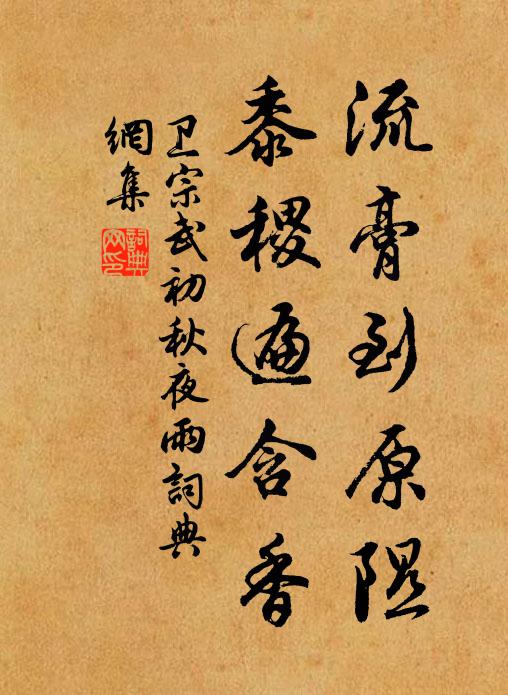 流膏到原隰
黍稷遍含香
卫宗武初秋夜雨詞典
網集
詞典
网印